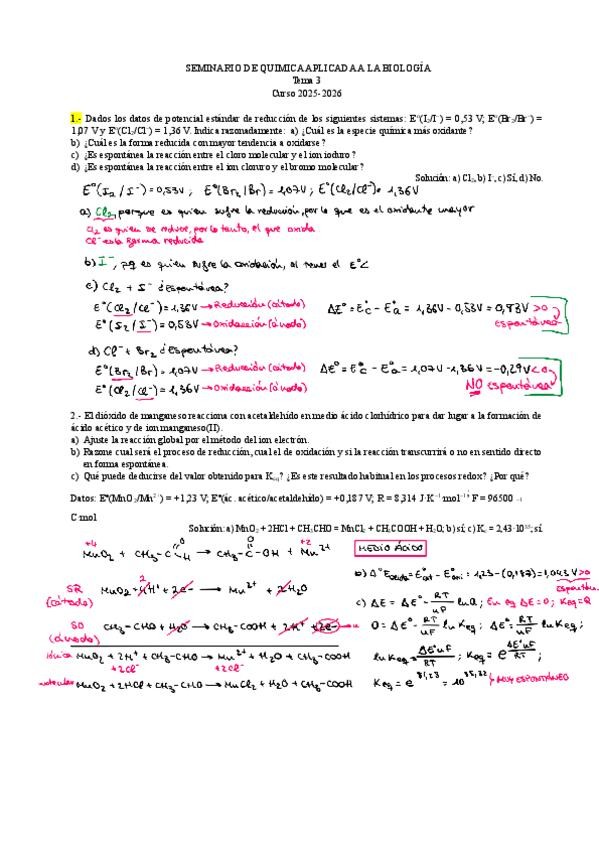 SEMINARIO DE QUIMICA APLICADA A LA BIOLOGÍA
Tema 3
Curso 2025-2026
1.- Dados los datos de potencial estándar de reducción de los siguientes sistemas: Eº(I₂/I⁻) = 0,53 V; Eº(Br₂/Br⁻) =
1,07 V y Eº(Cl₂/Cl⁻) = 1,36 V. Indica razonadamente: a) ¿Cuál es la especie química más oxidante?
b) ¿Cuál es la forma reducida con mayor tendencia a oxidarse?
c) ¿Es espontánea la reacción entre el cloro molecular y el ion ioduro?
d) ¿Es espontánea la reacción entre el ion cloruro y el bromo molecular?
Solución: a) Cl₂, b) I⁻, c) Sí, d) No.
E°(I₂/I⁻)=0,53V ; E°(Br₂/Br)=1,07V ; E°(Cl₂/Cl)=1,36V
a) Cl₂, porque es quien sufre la reducción, por lo que es el oxidante mayor
Cl₂ es quien se reduce, por lo tanto, el que oxida
Cl⁻ es la forma reducida
b) I⁻, pq es quien sufre la oxidación, al tener el E°<
c) Cl₂ + I⁻ ¿Espontánea?
E°(Cl₂/Cl⁻)=1,36V → Reducción (cátodo) ΔE°=E°c - E°a = 1,36V - 0,53V = 0,83V >0
E°(I₂/I⁻)=0,53V → Oxidación (ánodo) espontánea
d) Cl⁻ + Br₂ ¿Espontánea?
E°(Br₂/Br)=1,07V → Reducción (cátodo) ΔE°=E°c - E°a = 1,07V - 1,36V = -0,29V <0
E°(Cl₂/Cl⁻)=1,36V → Oxidación (ánodo) NO espontánea
2.- El dióxido de manganeso reacciona con acetaldehído en medio ácido clorhídrico para dar lugar a la formación de
ácido acético y de ion manganeso(II).
a) Ajuste la reacción global por el método del ion electrón.
b) Razone cual será el proceso de reducción, cual el de oxidación y si la reacción transcurrirá o no en sentido directo
en forma espontánea.
c) Qué puede deducirse del valor obtenido para K? ¿Es este resultado habitual en los procesos redox? ¿Por qué?
Datos: Eº(MnO₂/Mn²⁺) = +1,23 V; Eº(ác. acético/acetaldehído) = +0,187 V; R = 8,314 J·K⁻¹mol⁻¹ F = 96500 ₋₁
C mol
Solución: a) MnO₂ + 2HCl + CH₃CHO = MnCl₂ + CH₃COOH + H₂O; b) sí; c) K = 2,43·10³⁵; sí.
+4 O O +2
MnO₂ + CH₃-C-H → CH₃-C-OH + Mn²⁺ MEDIO ÁCIDO
b) Δ°E = E°cat - E°ani = 1,23-(0,187)=1,043 V>0
SR MnO₂ + 4H⁺ + 2e⁻ → Mn²⁺ + 2H₂O
(cátodo) 2
c) ΔE = ΔE° - RT/nF lnQ ; En eq ΔE=0 ; Keq=Q
SO CH₃-CHO + H₂O → CH₃-COOH + 2H⁺ + 2e⁻
(ánodo)
0 = ΔE° - RT/nF ln Keq ; ΔE° = RT/nF ln Keq ;
iónica MnO₂ + 2H⁺ + CH₃-CHO → Mn²⁺ + H₂O + CH₃-COOH
+2Cl⁻ +2Cl⁻
ln Keq = ΔE°nF/RT ; Keq = e^(ΔE°nF/RT) ;
molecular MnO₂ + 2HCl + CH₃-CHO → MnCl₂ + H₂O + CH₃-COOH
Keq = e^81,23 = 10^35,22 MUY ESPONTÁNEO